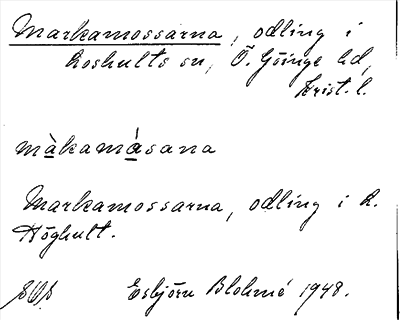 Markamossarna, odling i
Loshults sn, Ö. Göinge hd,
Krist. l.
màkamásana
Markamossarna, odling i L.
Höghult.
Esbjörn Blohmé 1948.